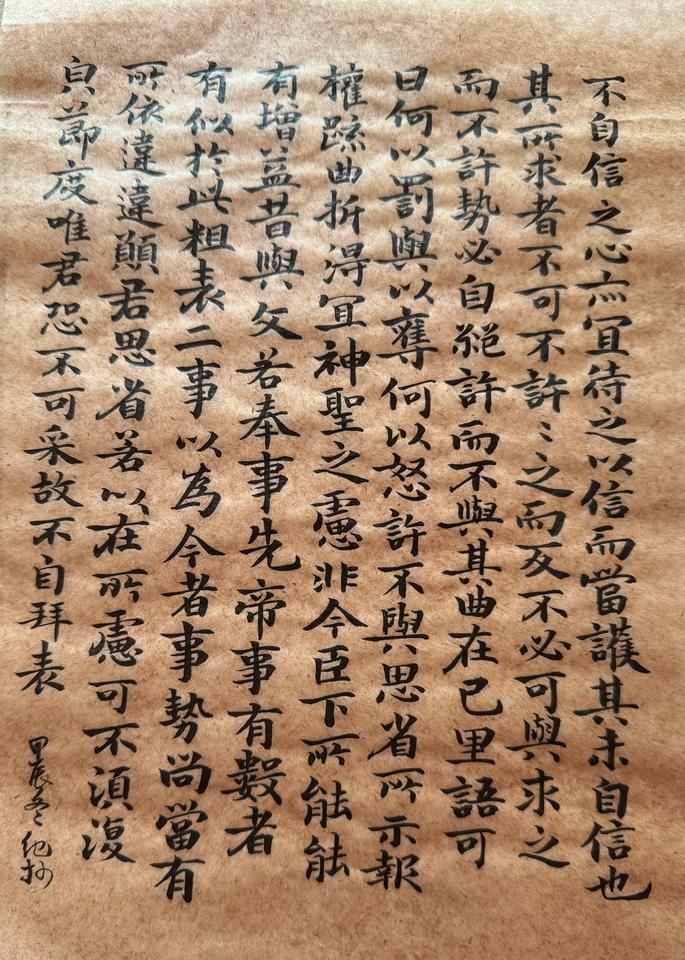 不自信之心亦宜待之以信而當護其未自信也
其所求者不可不許〻之而反不必可與求之
而不許勢必自絕許而不與其曲在己里語可
曰何以罰與以奪何以怒許不與思省所示報
權踈曲折得宜神聖之慮非今臣下所能能
有增益昔與文若奉事先帝事有數者
有似於此粗表二事以為今者事勢尚當有
所依違違願君思省若以在所慮可不須復
皃節度唯君恐不可采故不自拜表
甲辰冬紀抄